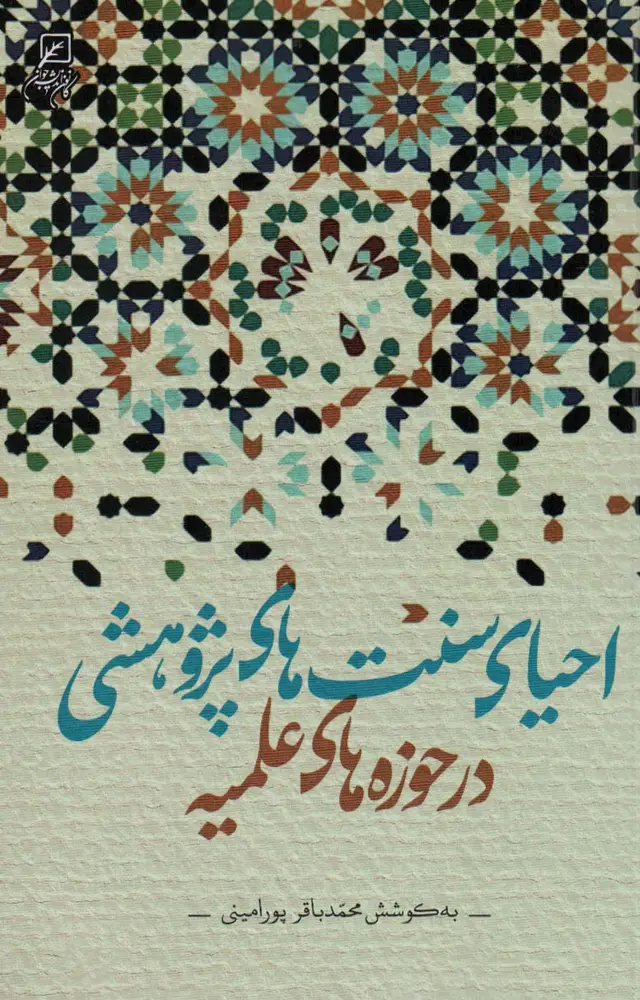 کانون اندیشه جوان
احیای سنت‌های پژوهشی
در حوزه‌های علمیه
به کوشش محمّدباقر پورامینی